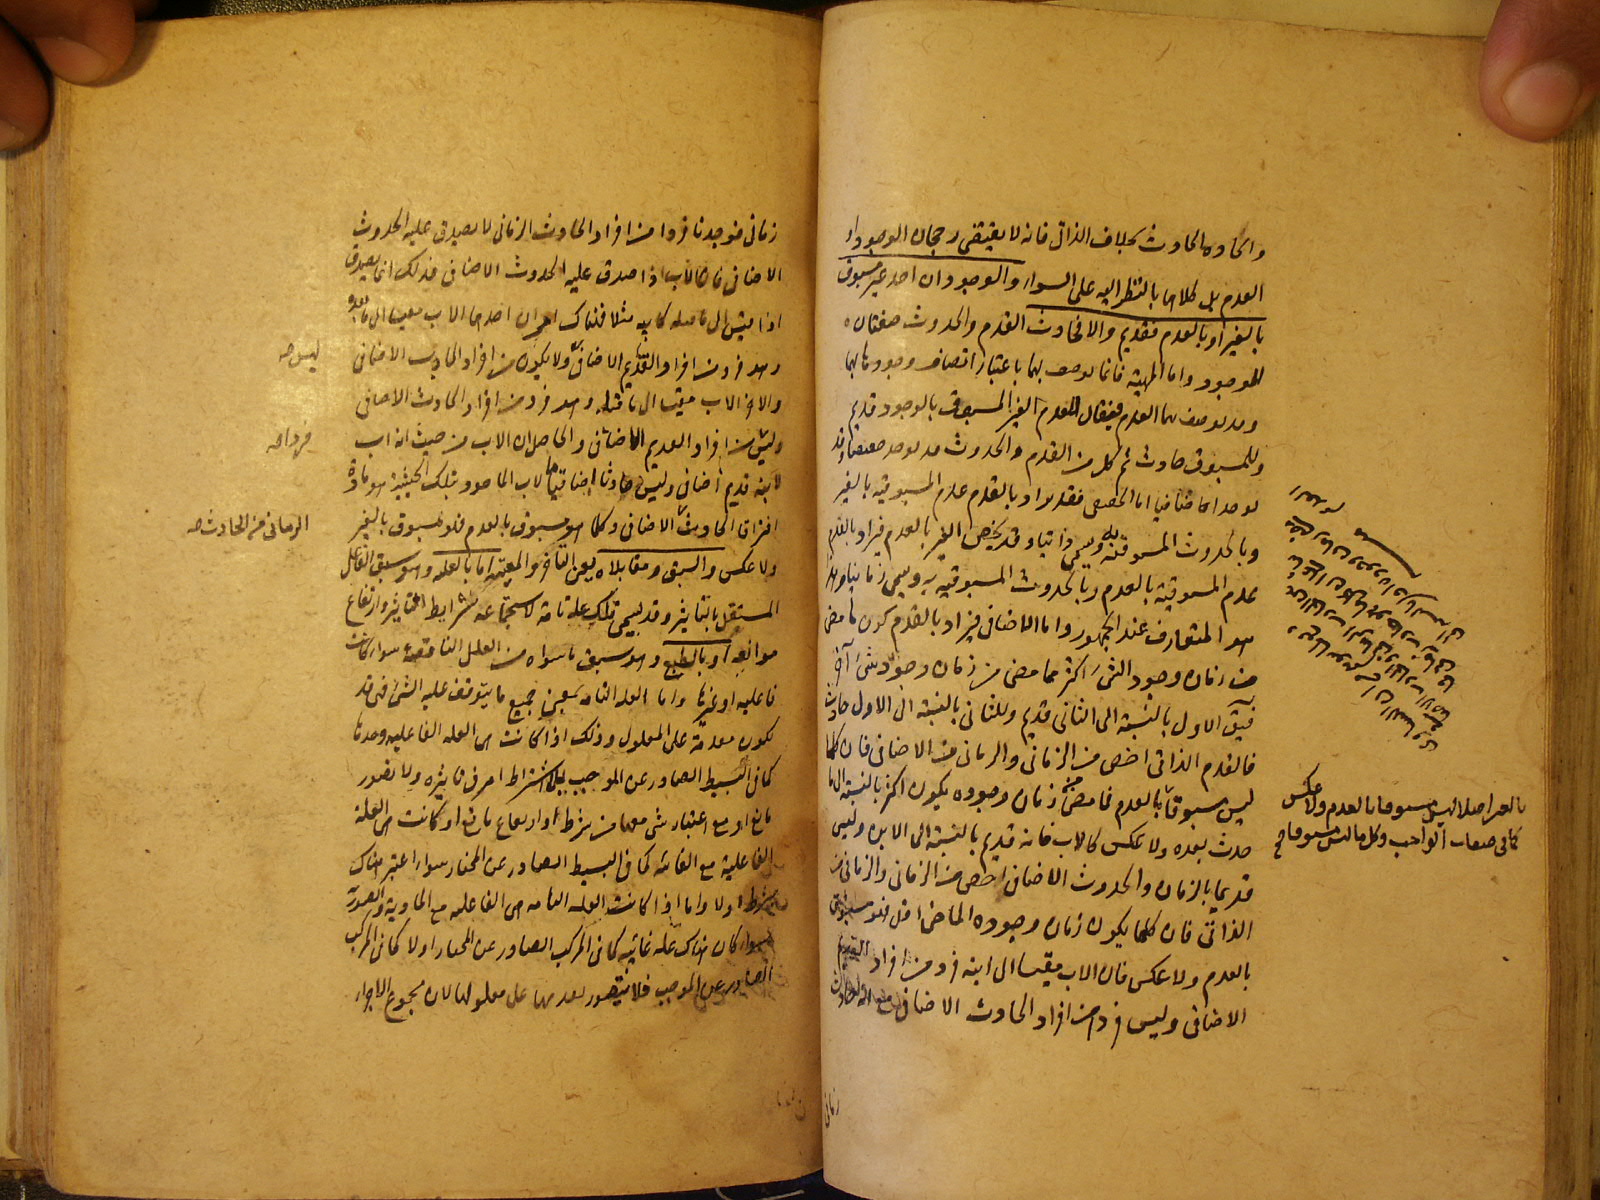 والحادة الحادث بخلاف الذاتى فانه لا يقتضى رجحان الوجود او
العدم بل كلاهما بالنظر اليه على السواء والوجود ان اخذ غير مسبوق
بالغير او بالعدم فقديم والا فحادث القدم والحدوث صفتان
للموجود واما المهية فانما توصف بهما باعتبار اتصاف وجودها بهما
وقد يوصف بهما العدم فيقال للعدم الغير المسبوق بالوجود قديم
وللمسبوق حادث ثم كل من القدم والحدوث قد يوخذ حقيقيا وقد
يوخذ اضافيا اما الحقيقى فقد يراد بالقدم عدم المسبوقية بالغير
وبالحدوث المسبوقية به ويسمى ذاتيا وقد يخص الغير بالعدم فيراد بالقدم
عدم المسبوقية بالعدم وبالحدوث المسبوقية به ويسمى زمانيا وهذا
هو المتعارف عند الجمهور واما الاضافى فيراد بالقدم كون ما مضى
من زمان وجود الشئ اكثر مما مضى من زمان وجود شئ آخر
فيق الاول بالنسبة الى الثانى قديم وللثانى بالنسبة الى الاول حادث
فالقدم الذاتى اخص من الزمانى والزمانى من الاضافى فان كلما
ليس مسبوقا بالعدم فما مضى من زمان وجوده يكون اكثر بالنسبة الى ما
حدث بعده ولا عكس كالاب فانه قديم بالنسبة الى الابن وليس
قديما بالزمان والحدوث الاضافى اخص من الزمانى والزمانى من
الذاتى فان كلما يكون زمان وجوده الماضى اقل فهو مسبوق
بالعدم ولا عكس فان الاب مقيسا الى ابنه فرد من افراد القديم
الاضافى وليس فردا من افراد الحادث الاضافى مع انه حادث
زمانى
بالغير اصلا ليس مسبوقا بالعدم ولا عكس
كما فى صفات الواجب وكل ما ليس مسبوقا
زمانى فوجدنا فردا من افراد الحادث الزمانى لا يصدق عليه الحدوث
الاضافى فان الاب اذا صدق عليه الحدوث الاضافى فذلك انما يصدق
اذا قيس الى ما قبله كابيه مثلا فهناك امران احدهما الاب مقيسا الى ما بعده
وهو فرد من افراد القديم الاضافى ولا يكون من افراد الحادث الاضافى
والاخر الاب مقيسا الى ما قبله وهو فرد من افراد الحادث الاضافى
وليس من افراد القديم الاضافى والحاصل ان الاب من حيث انه اب
لابنه قديم اضافى وليس حادثا اضافيا فالاب الماخوذ بتلك الحيثية هو مادة
افتراق الحادث الاضافى وكلما هو مسبوق بالعدم فهو مسبوق بالغير
ولا عكس والسبق ومقابلاه يعنى التاخر والمعية اما بالعلية وهو سبق الفاعل
المستقل بالتاثير وقد يسمى تلك علة تامة لاستجماعه شرايط التاثير وارتفاع
موانعه او بالطبع وهو سبق ما سواه من العلل الناقصة سواء كانت
فاعلية او غيرها واما العلة التامة بمعنى جميع ما يتوقف عليه الشئ فى قد
تكون مقدمة على المعلول وذلك اذا كانت هى العلة الفاعلية وحدها
كما فى البسيط الصادر عن الموجب بلا اشتراط امر فى تاثيره ولا تصور
مانع او مع اعتبار شئ معها من شرط او ارتفاع مانع او كانت هى العلة
الفاعلية مع الغائية كما فى البسيط الصادر عن المختار سواء اعتبر هناك
شرط اولا واما اذا كانت العلة التامة هى الفاعلية مع المادية والصورية
سواء كان هناك علة غائية كما فى المركب الصادر عن المختار اولا كما فى المركب
الصادر عن الموجب فلا يتصور تقدمها على معلولها لان مجموع الاجزاء
ليس صح
فردا صح
الزمانى من الحادث صح